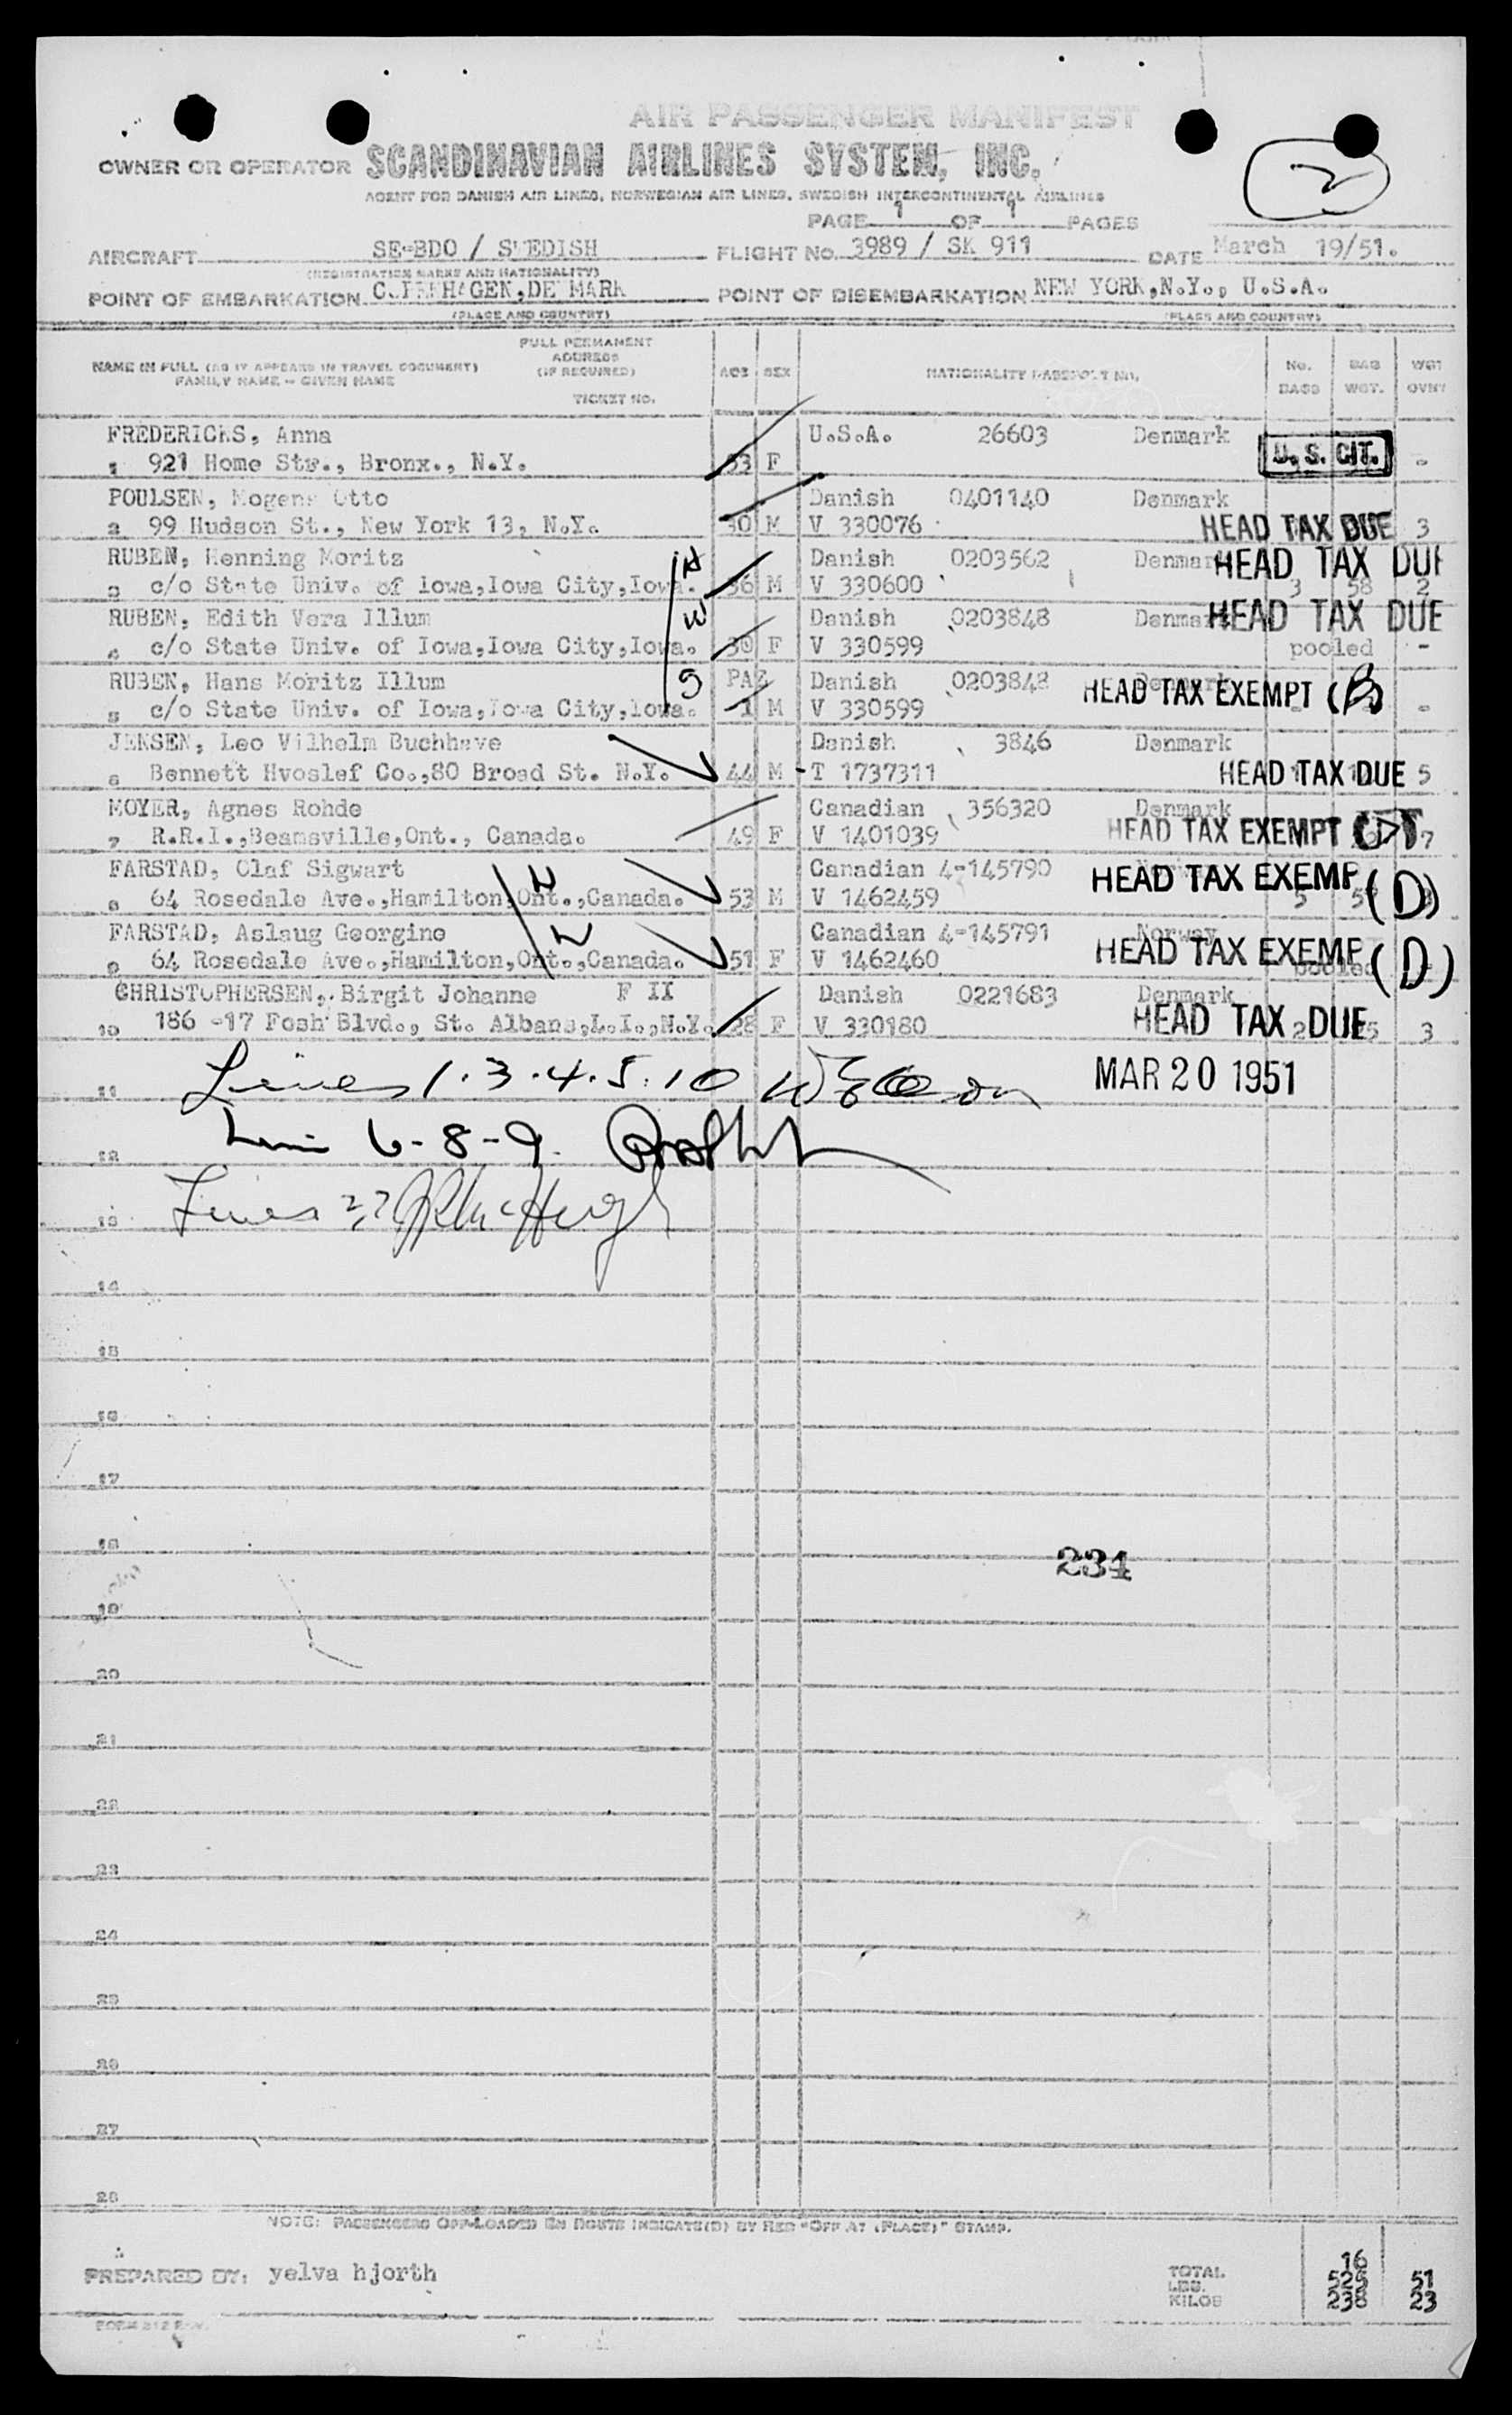 AIR PASSENGER MANIFEST
2
OWNER OR OPERATOR SCANDINAVIAN AIRLINES SYSTEM, INC.
AGENT FOR DANISH AIR LINES, NORWEGIAN AIR LINES, SWEDISH INTERCONTINENTAL AIRLINES
PAGE 1 OF 1 PAGES
AIRCRAFT SE-BDO / SWEDISH FLIGHT NO. 3989 / SK 911 DATE March 19/51.
(REGISTRATION MARKS AND NATIONALITY)
POINT OF EMBARKATION COPENHAGEN,DENMARK POINT OF DISEMBARKATION NEW YORK,N.Y., U.S.A.
(PLACE AND COUNTRY) (PLACE AND COUNTRY)
NAME IN FULL (AS IT APPEARS IN TRAVEL DOCUMENT) FULL PERMANENT ADDRESS (IF REQUIRED) AGE SEX NATIONALITY PASSPORT NO. No. BAGS BAG WGT. WGT OVNT
FAMILY NAME - GIVEN NAME TICKET NO.
FREDERICKS, Anna U.S.A. 26603 Denmark U.S. CIT.
1 921 Home Str., Bronx., N.Y. 53 F -
POULSEN, Mogens Otto Danish 0401140 Denmark
2 99 Hudson St., New York 13, N.Y. 30 M V 330076 HEAD TAX DUE 3
RUBEN, Henning Moritz H Danish 0203562 Denmark HEAD TAX DUE
3 c/o State Univ. of Iowa,Iowa City,Iowa. 36 M V 330600 3 58 2
RUBEN, Edith Vera Illum W Danish 0203848 Denmark HEAD TAX DUE
4 c/o State Univ. of Iowa,Iowa City,Iowa. 30 F V 330599 pooled -
RUBEN, Hans Moritz Illum S Danish 0203848 Denmark HEAD TAX EXEMPT (B)
5 c/o State Univ. of Iowa,Iowa City,Iowa. 1 M V 330599 -
JENSEN, Leo Vilhelm Buchhave Danish 3846 Denmark
6 Bennett Hvoslef Co.,80 Broad St. N.Y. 44 M -T 1737311 HEAD TAX DUE 5
MOYER, Agnes Rohde Canadian 356320 Denmark
7 R.R.I.,Beamsville,Ont., Canada. 49 F V 1401039 HEAD TAX EXEMPT 7
FARSTAD, Olaf Sigwart H Canadian 4-145790 Norway
8 64 Rosedale Ave.,Hamilton,Ont.,Canada. 53 M V 1462459 HEAD TAX EXEMP (D) 5
FARSTAD, Aslaug Georgine W Canadian 4-145791 Norway
9 64 Rosedale Ave.,Hamilton,Ont.,Canada. 51 F V 1462460 HEAD TAX EXEMP (D) pooled
CHRISTOPHERSEN, Birgit Johanne F II Danish 0221683 Denmark
10 186 -17 Fosh Blvd., St. Albans,L.I.,N.Y. 28 F V 330180 HEAD TAX DUE 2 3
11 Lines 1.3.4.5.10 MAR 20 1951
12 6-8-9
13 Lines 2,7
14
15
16
17
18
234
19
20
21
22
23
24
25
26
27
28
NOTE: PASSENGERS OFF-LOADED EN ROUTE INDICATE(D) BY RED "OFF AT (PLACE)" STAMP.
PREPARED BY: yelva hjorth
TOTAL 16
LBS. 525 51
KILOS 238 23
FORM 212 Rev.